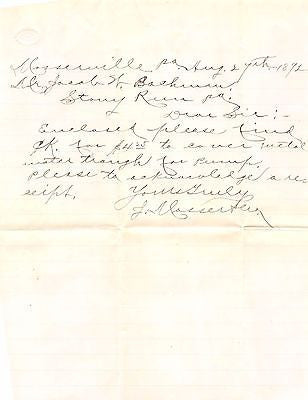 Mosserville Pa Aug. 27th 1892
Mr. Jacob H. Bachman
Stony Run Pa
Dear Sir :-
Enclosed please find
ck. for $4.25 to cover metal
water trough for pump.
Please to acknowledge a re-
ceipt.
Yours truly
J. Mosser